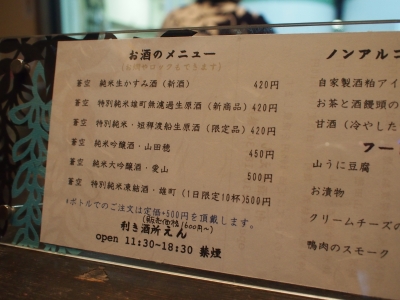 お酒のメニュー
蒼空 純米生かすみ酒(新酒) 420円
蒼空 特別純米雄町無濾過生原酒(新商品)420円
蒼空 特別純米・短稈渡船生原酒(限定品)420円
蒼空 純米吟醸酒・山田穂 450円
蒼空 純米大吟醸酒・愛山 500円
蒼空 特別純米凍結酒・雄町(1日限定10杯)500円
*ボトルでのご注文は定価+500円を頂戴します。
(販売価格1600円〜)
利き酒所えん
open 11:30~18:30 禁煙
ノンアルコ
自家製酒粕アイ
お茶と酒饅頭の
甘酒(冷やした
フー
山うに豆腐
お漬物
クリームチーズの
鴨肉のスモーク